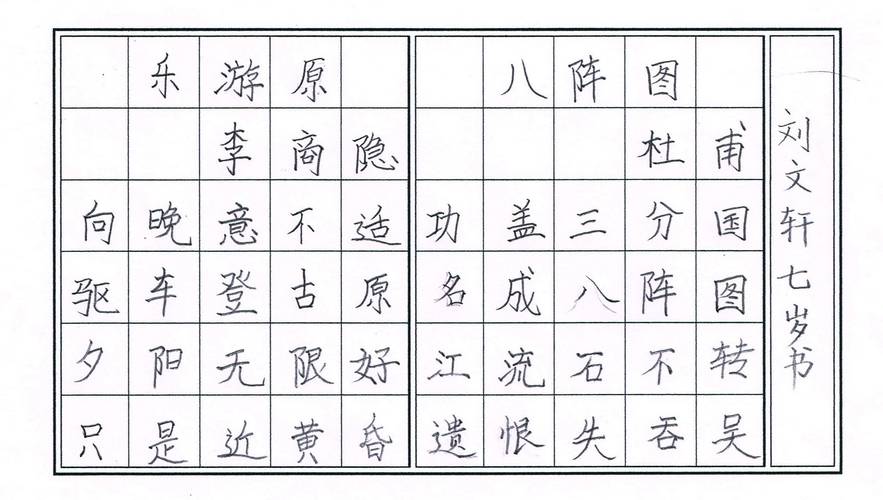 乐游原
李商隐
向晚意不适
驱车登古原
夕阳无限好
只是近黄昏
八阵图
杜甫
功盖三分国
名成八阵图
江流石不转
遗恨失吞吴
刘文轩七岁书